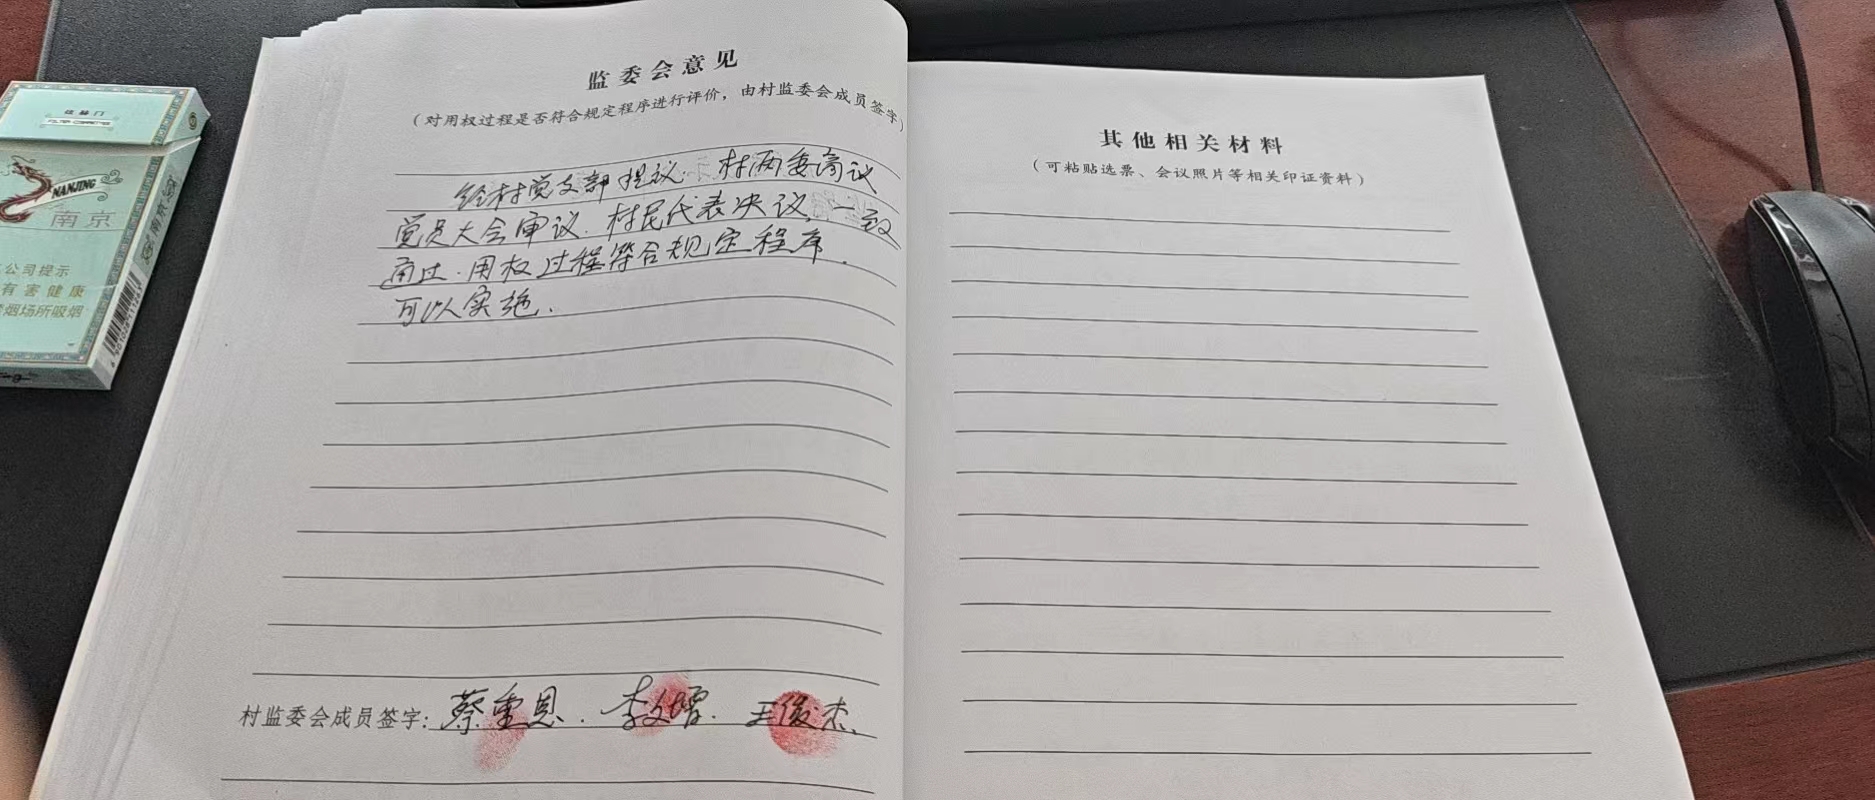 监委会意见
（对用权过程是否符合规定程序进行评价，由村监委会成员签字）
经村党支部提议.村两委商议
党员大会审议.村民代表决议,一致
通过.用权过程符合规定程序.
可以实施.
村监委会成员签字:蔡重恩.李文增.王俊杰.
其他相关材料
（可粘贴选票、会议照片等相关印证资料）
NANJING
南京
公司提示
有害健康
烟场所吸烟